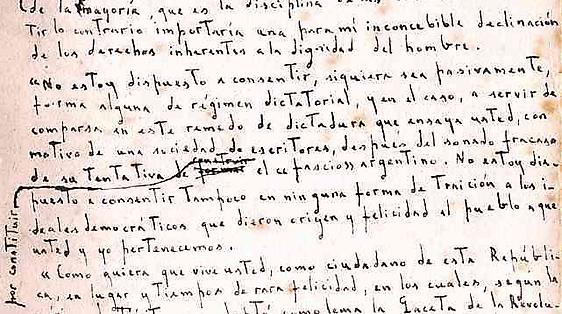 (de la mayoría, que es la disciplina de
Tir lo contrario importaría una para mí inconcebible declinación
de los derechos inherentes a la dignidad del hombre.
"No estoy dispuesto a consentir, siquiera sea pasivamente,
forma alguna de régimen dictatorial, y en el caso, a servir de
comparsa en este remedo de dictadura que ensaya usted, con
motivo de una sociedad de escritores, después del sonado fracaso
construir
de su tentativa de formar el "fascio" argentino. No estoy dis-
puesto a consentir tampoco en ninguna forma de traición a los i-
deales democráticos que dieron origen y felicidad al pueblo a que
usted y yo pertenecemos.
"Como quiera que vive usted, como ciudadano de esta Repúbli-
ca, en lugar y tiempos de rara felicidad, en los cuales, según la
como lema la Gaceta de la Revolu-
por constituir